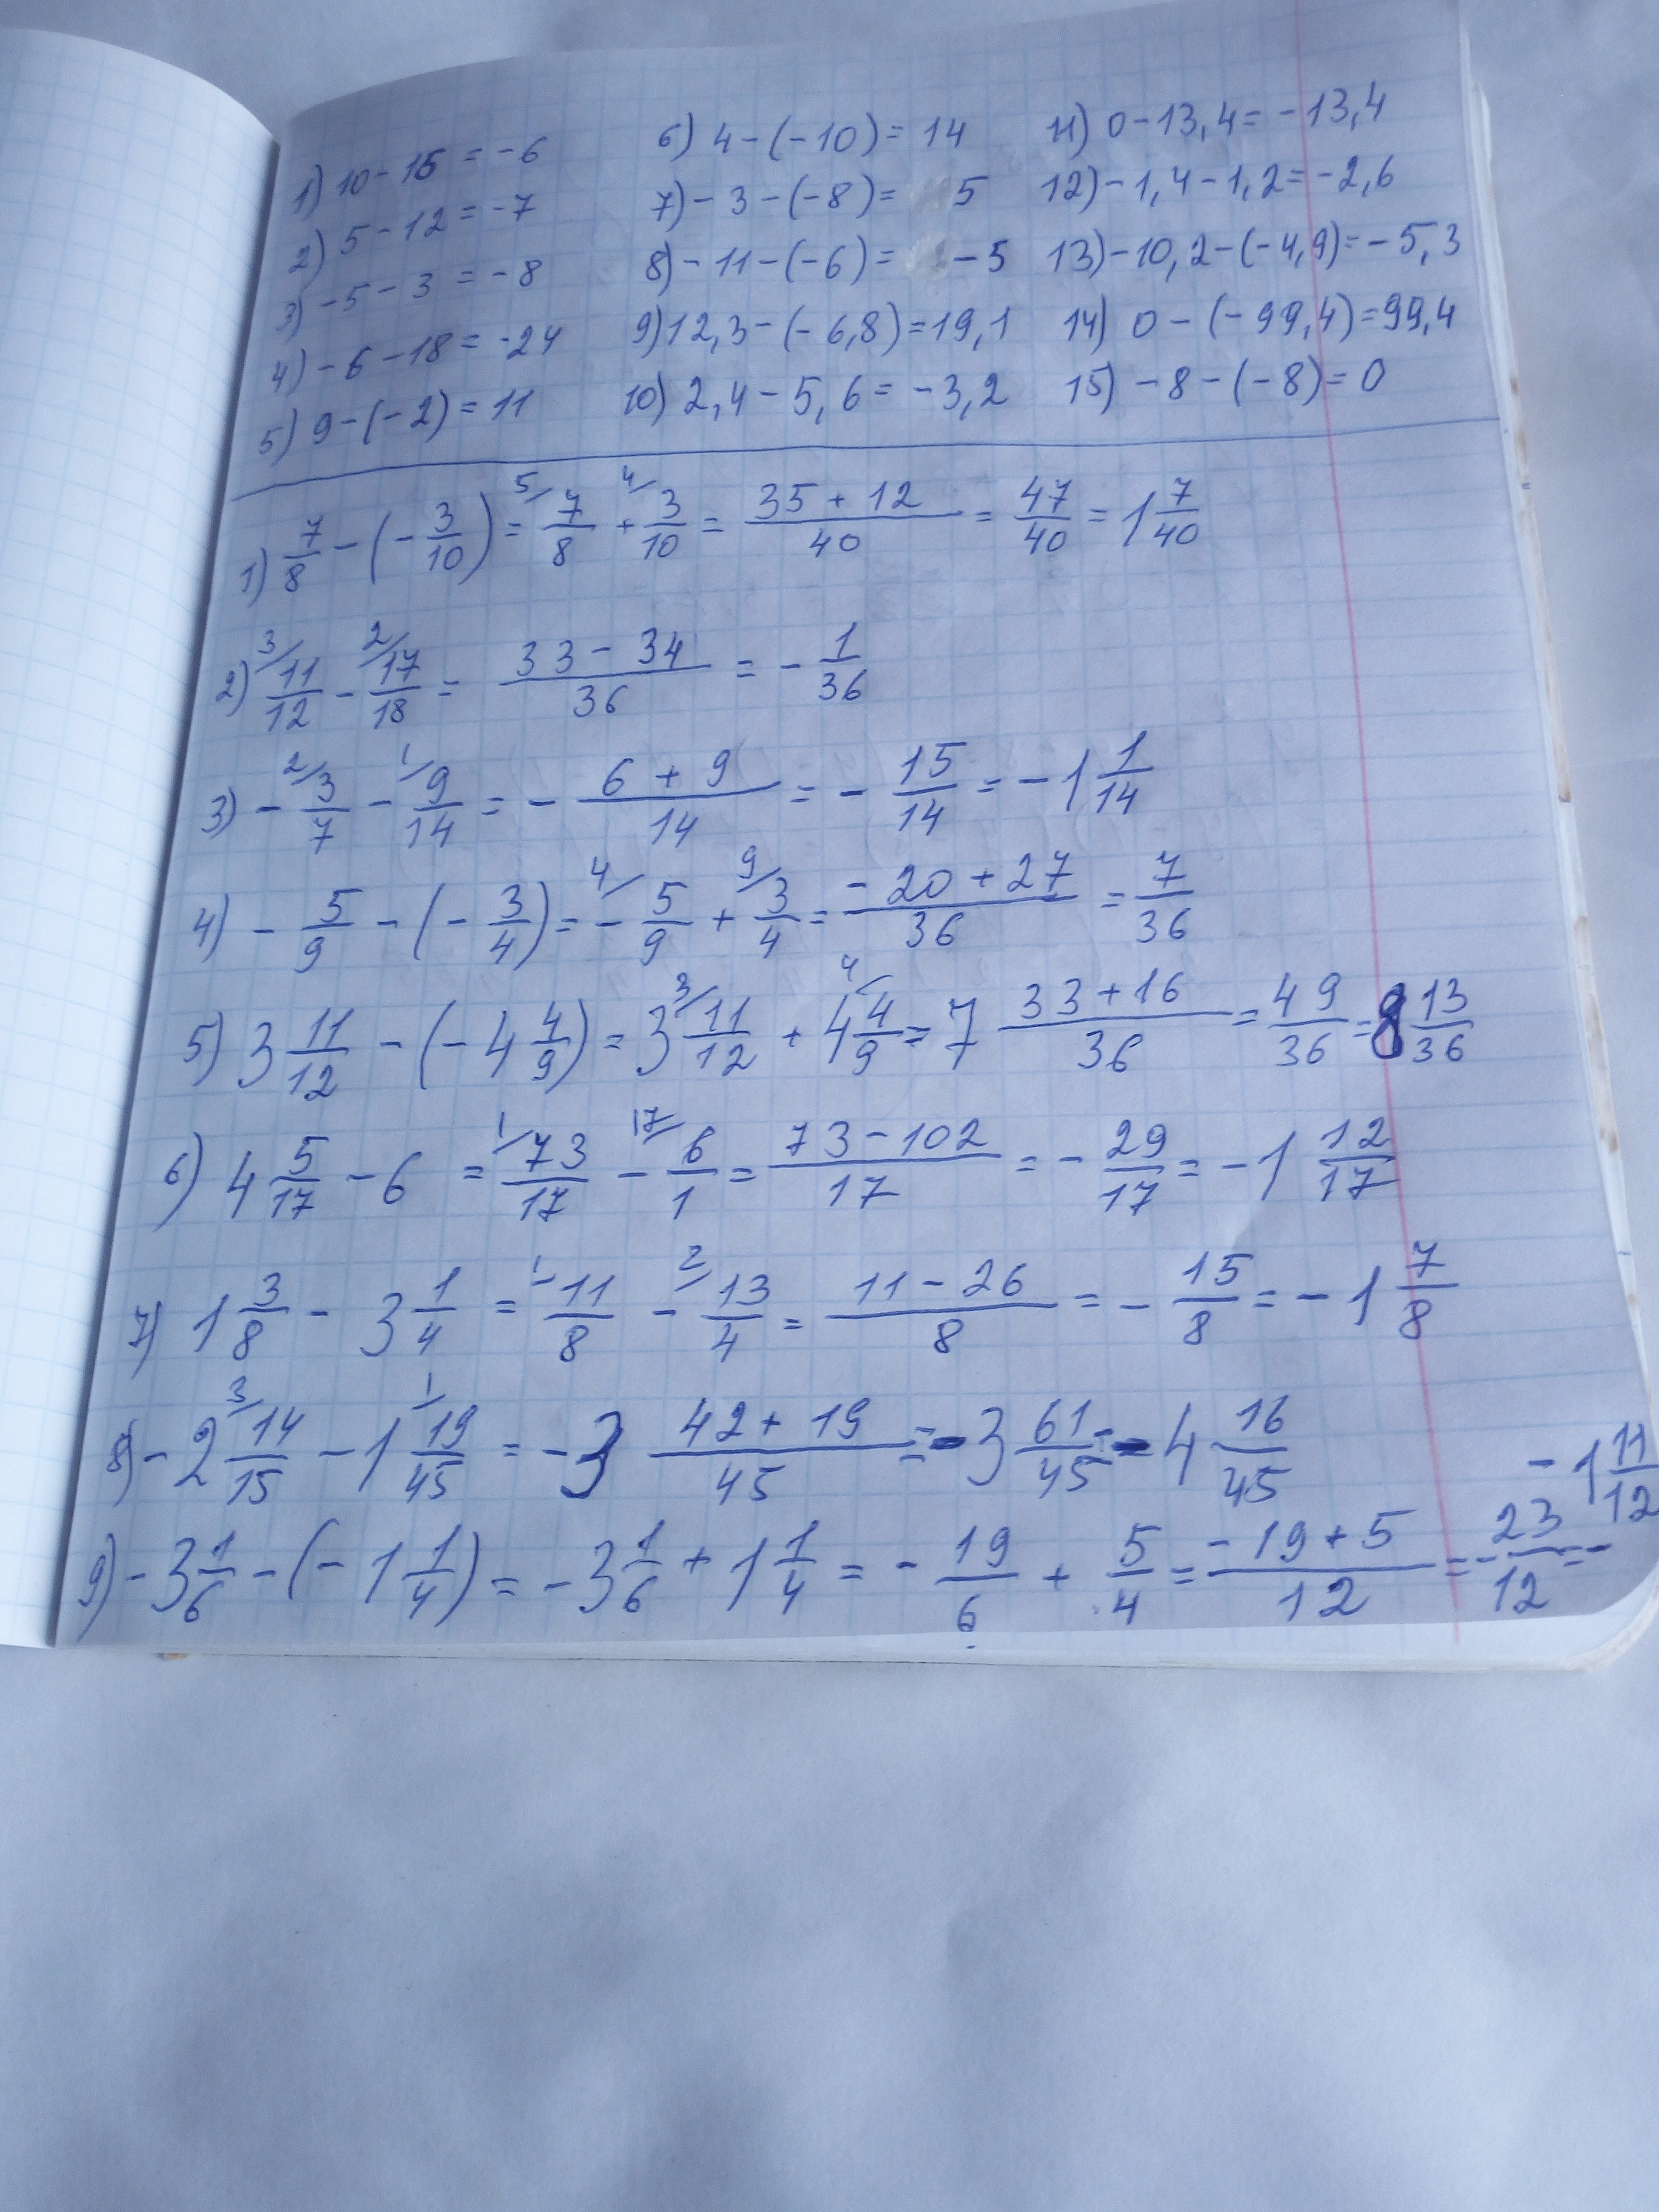 1) 10 - 15 = -6
2) 5 - 12 = -7
3) -5 - 3 = -8
4) -6 - 18 = -24
5) 9 - (-2) = 11
6) 4 - (-10) = 14
7) -3 - (-8) = 5
8) -11 - (-6) = -5
9) 12,3 - (-6,8) = 19,1
10) 2,4 - 5,6 = -3,2
11) 0 - 13,4 = -13,4
12) -1,4 - 1,2 = -2,6
13) -10,2 - (-4,9) = -5,3
14) 0 - (-99,4) = 99,4
15) -8 - (-8) = 0
1) 7/8 - (-3/10) = 5/ 7/8 + 4/ 3/10 = (35 + 12)/40 = 47/40 = 1 7/40
2) 3/ 11/12 - 2/ 17/18 = (33 - 34)/36 = - 1/36
3) - 2/ 3/7 - 1/ 9/14 = - (6 + 9)/14 = - 15/14 = -1 1/14
4) - 5/9 - (- 3/4) = 4/ - 5/9 + 9/ 3/4 = (-20 + 27)/36 = 7/36
5) 3 11/12 - (-4 4/9) = 3 3/ 11/12 + 4 4/ 4/9 = 7 (33 + 16)/36 = 49/36 = 8 13/36
6) 4 5/17 - 6 = 1/ 73/17 - 17/ 6/1 = (73 - 102)/17 = - 29/17 = -1 12/17
7) 1 3/8 - 3 1/4 = 1/ 11/8 - 2/ 13/4 = (11 - 26)/8 = - 15/8 = -1 7/8
8) -2 3/ 14/15 - 1 1/ 19/45 = -3 (42 + 19)/45 = -3 61/45 = -4 16/45
9) -3 1/6 - (-1 1/4) = -3 1/6 + 1 1/4 = - 19/6 + 5/4 = (-19 + 5)/12 = - 23/12 = - -1 11/12